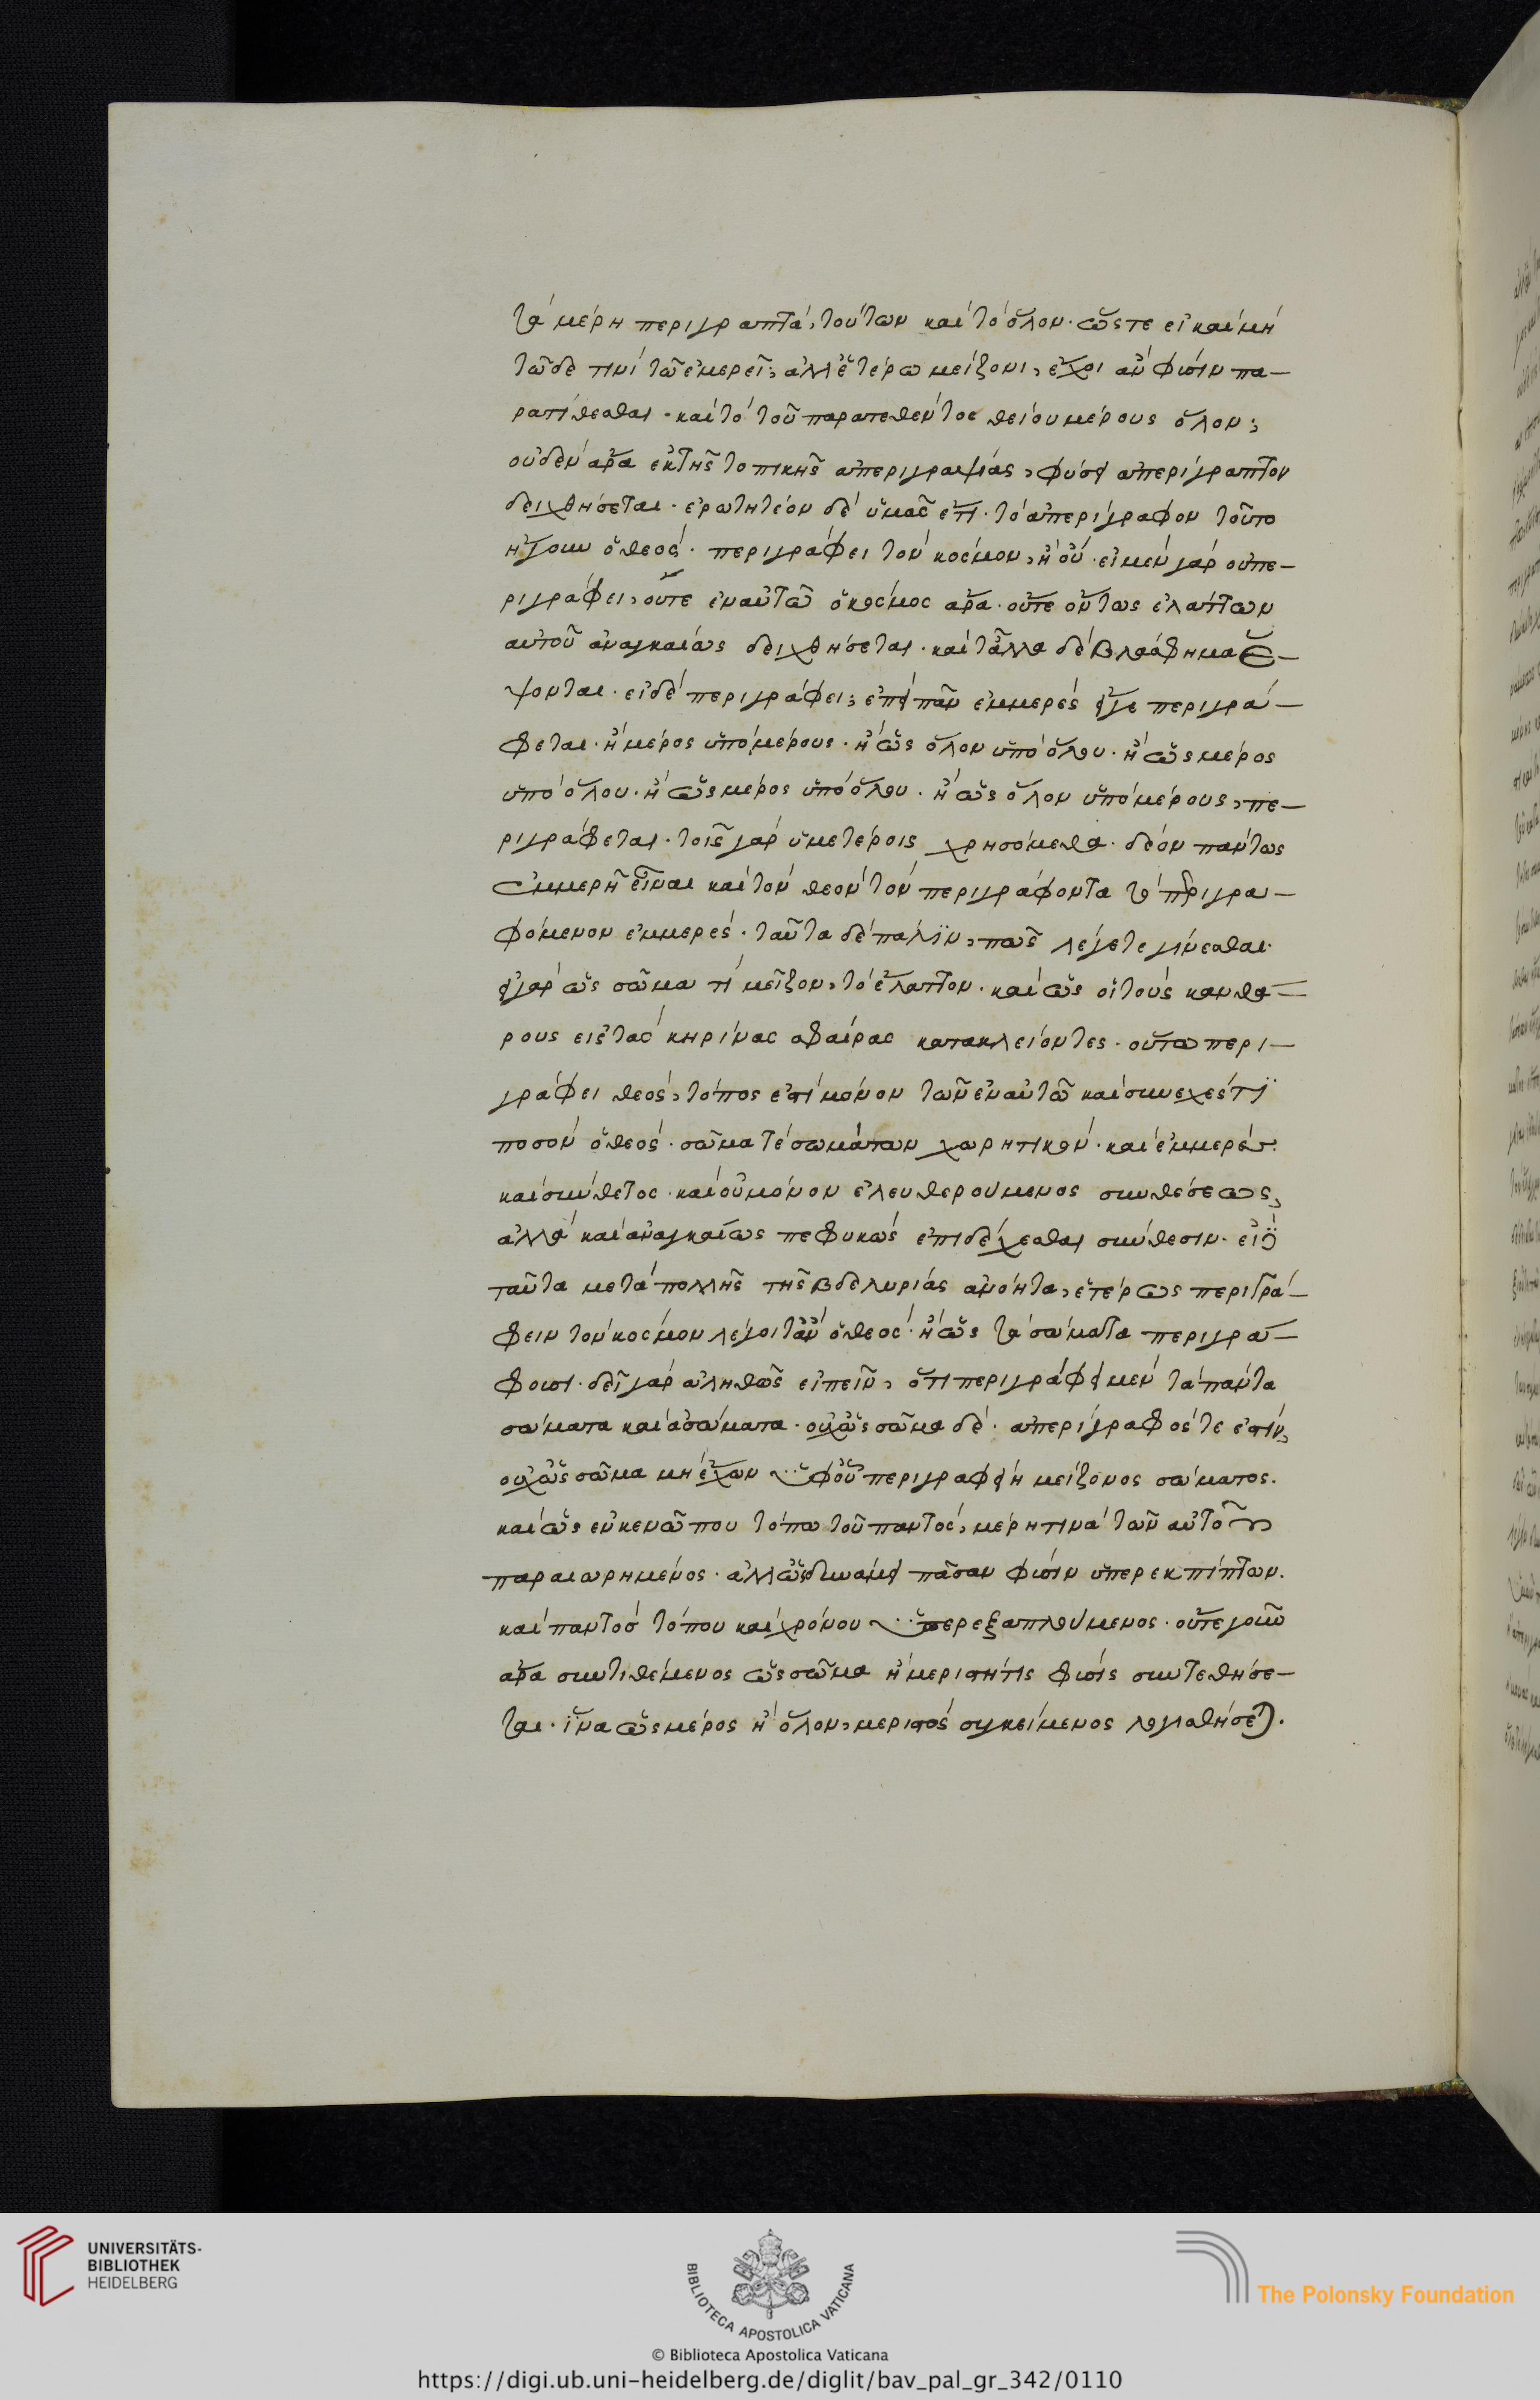 τὰ μέρη περιγραπτὰ, τούτων καὶ τὸ ὅλον. ὥστε εἰ καὶ μὴ
τῶδέ τινι τῶ ἐμερεῖ, ἀλλ' ἑτέρω μείζονι, ἔχοι ἂν φύσιν πα-
ρατίθεσθαι. καὶ τὸ τοῦ παρατεθέντος θείου μέρους ὅλον,
οὐδὲν ἄρα ἐκ τῆς τοπικῆς ἀπεριγραψίας, φύσει ἀπερίγραπτον
δειχθήσεται. ἐρωτητέον δὲ ὑμᾶς ἔτι. τὸ ἀπερίγραφον τοῦτο
ἤγουν ὁ θεὸς. περιγράφει τὸν κόσμον, ἢ οὔ. εἰ μὲν γὰρ οὐ πε-
ριγράφει, οὔτε ἐν αὐτῶ ὁ κόσμος ἄρα. οὔτε ὄντως ἐλάττων
αὐτοῦ ἀναγκαίως δειχθήσεται. καὶ τἄλλα δὲ βλάσφημα ἕ-
ψονται. εἰ δὲ περιγράφει, ἐπεὶ πᾶν ἐμμερὲς εἴγε περιγρά-
φεται. ἢ μέρος ὑπὸ μέρους. ἢ ὡς ὅλον ὑπὸ ὅλου. ἢ ὡς μέρος
ὑπὸ ὅλου. ἢ ὡς μέρος ὑπὸ ὅλου. ἢ ὡς ὅλον ὑπὸ μέρους, πε-
ριγράφεται. τοῖς γὰρ ὑμετέροις χρησόμεθα. δέον πάντως
ἐμμερῆ εἶναι καὶ τὸν θεὸν τὸν περιγράφοντα τὸ περιγρα-
φόμενον ἐμμερὲς. ταῦτα δὲ πάλιν, πῶς λέγετε γίνεσθαι.
εἰ γὰρ ὡς σῶμά τι μεῖζον, τὸ ἔλαττον. καὶ ὡς οἱ τοὺς κανθά-
ρους εἰς τὰς κηρίνας σφαίρας κατακλείοντες. οὕτω περι-
γράφει θεὸς, τόπος ἐστὶ μόνον τῶν ἐν αὐτῶ καὶ συνεχές τι
ποσὸν ὁ θεὸς. σῶμά τε σωμάτων χωρητικὸν. καὶ ἐμμερὲς.
καὶ σύνθετος. καὶ οὐ μόνον ἐλευθερούμενος συνθέσεως,
ἀλλὰ καὶ ἀναγκαίως πεφυκὼς ἐπιδέχεσθαι σύνθεσιν. εἰ δὲ
ταῦτα μετὰ πολλῆς τῆς βδελυρίας ἀνόητα, ἑτέρως περιγρά-
φειν τὸν κόσμον λέγοιτ' ἂν ὁ θεὸς. ἢ ὡς τὰ σώματα περιγρά-
φουσι. δεῖ γὰρ ἀληθῶς εἰπεῖν, ὅτι περιγράφει μὲν τὰ πάντα
σώματα καὶ ἀσώματα. οὐχ ὡς σῶμα δὲ. ἀπερίγραφός τε ἐστὶν,
οὐχ ὡς σῶμα μὴ ἔχων ὑφ' οὗ περιγραφείη μείζονος σώματος.
καὶ ὡς ἐν κενῶ που τόπω τοῦ παντὸς, μέρη τινὰ τῶν αὐτοῦ
παραιωρημένος. ἀλλ' ὡς δυνάμει πᾶσαν φύσιν ὑπερεκπίπτων.
καὶ παντὸς τόπου καὶ χρόνου ὑπερεξαπλούμενος. οὔτε γοῦν
ἄρα συντιθέμενος ὡς σῶμα ἢ μεριστή τις φύσις συντεθήσε-
ται. ἵνα ὡς μέρος ἢ ὅλον, μεριστὸς συγκείμενος λογισθήσεται.
UNIVERSITÄTS-
BIBLIOTHEK
HEIDELBERG
BIBLIOTECA APOSTOLICA VATICANA
The Polonsky Foundation
© Biblioteca Apostolica Vaticana
https://digi.ub.uni-heidelberg.de/diglit/bav_pal_gr_342/0110